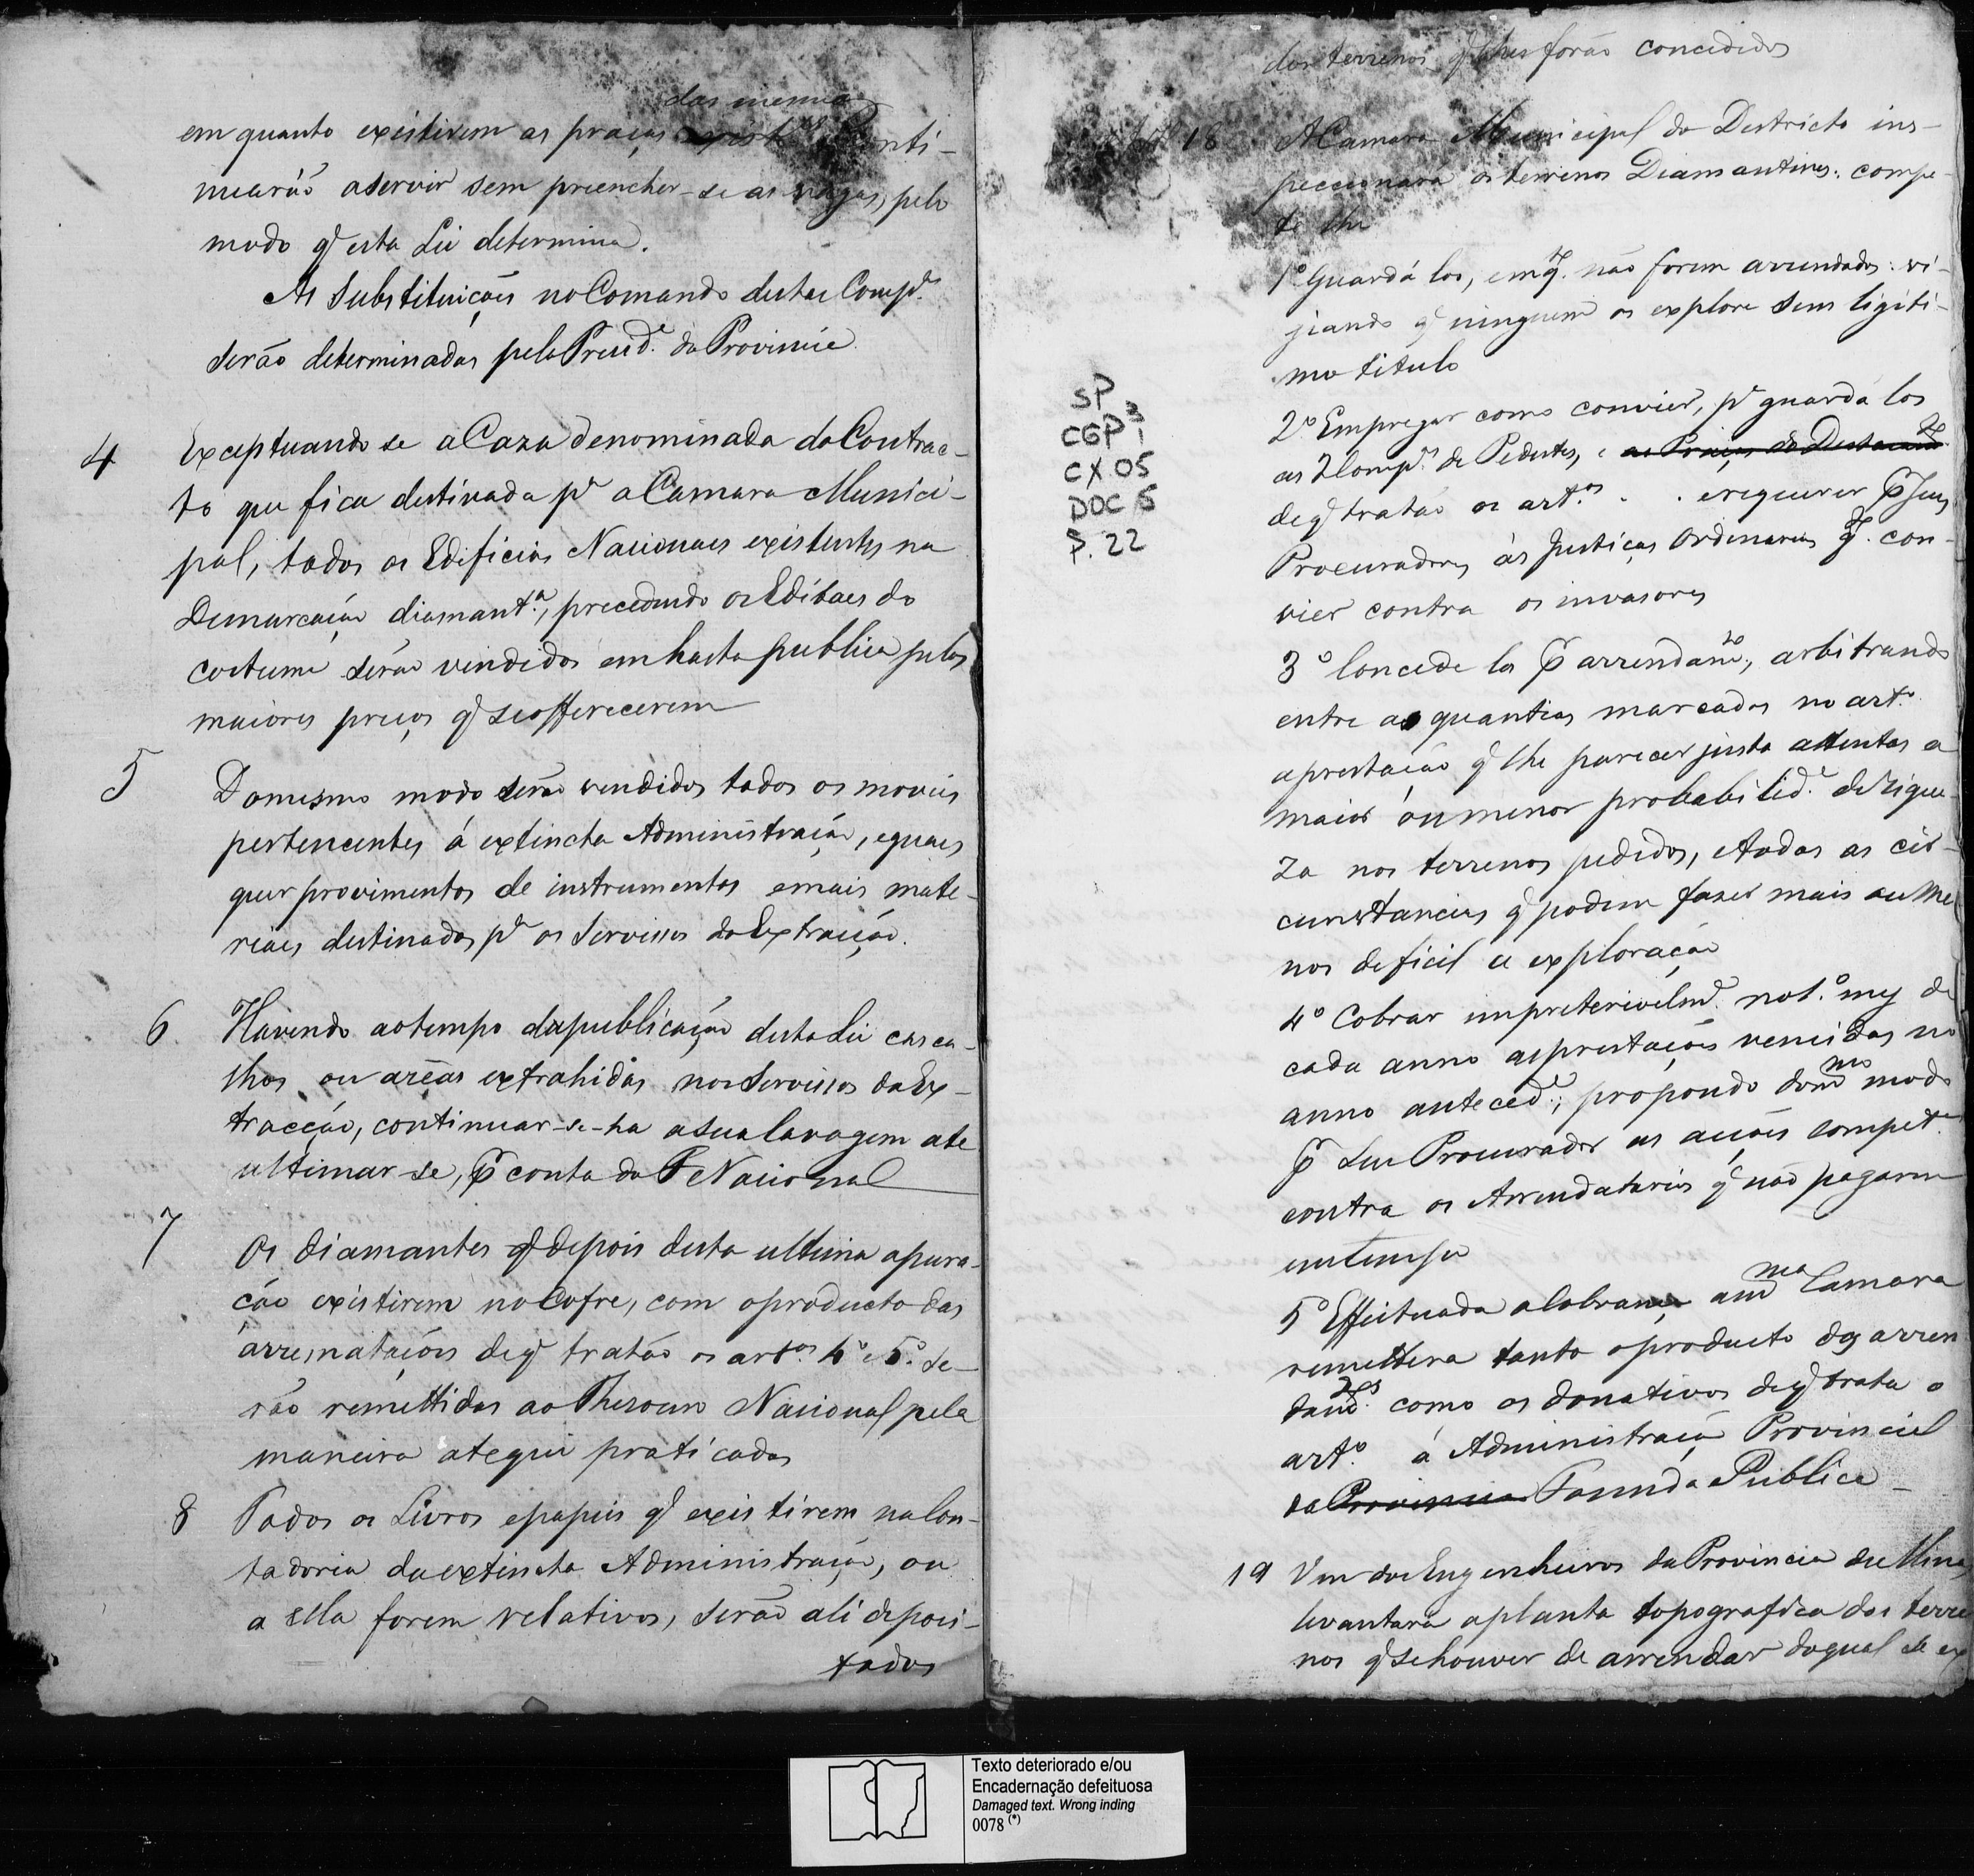 das mesmas
em quanto existirem as praças Conti-
nuarão a servir sem preencher-se as vagas, pelo
modo q̃ esta Lei determina.
As Substituiçoẽs no Comando destas Comp.ᵃˢ
serão determinadas pelo Presid.ᵉ da Provincia
4 Exceptuando se a Caza denominada do Contrac-
to que fica destinada p.ᵃ a Camara Munici-
pal, todos os Edificios Nacionaes existentes na
Demarcação diamant.ᵃ, precedendo os Editaes do
costume serão vendidos em hasta publica pelos
maiores preços q̃ se offerecerem
5 Do mesmo modo serão vendidos todos os moveis
pertencentes á extincta Administração, e quaes
quer provimentos de instrumentos e mais mate-
riaes destinados p.ᵃ os Servissos da Extracção.
6 Havendo ao tempo da publicação desta Lei casca-
lhos ou arêas extrahidas nos Servissos da Ex-
tracção, continuar-se-ha a sua lavagem ate
ultimar-se, p̃ conta da F Nacional
7 Os diamantes q̃ depois desta ultima apura-
ção existirem no Cofre, com o producto das
arremataçoẽs de q̃ tratão os art.ᵒˢ 4º e 5º se-
rão remettidos ao Thesouro Nacional pela
maneira ate qui praticada
8 Todos os Livros e papeis q̃ existirem na Con-
tadoria da extincta Administração, ou
a ella forem relativos, serão ali deposi-
tados
dos terrenos q̃ lhes forão concedidos
18 A Camara Municipal do Destricto ins-
peccionará os terrenos Diamantinos: compe-
te lhe
1º Guardá los, em q.ᵗᵒ não forem arrendados: vi-
giando q̃ ninguem os explore sem ligiti-
mo titulo
SP
CGP³ 1
CX. 05
DOC 5
P. 22
2º Empregar como convier, p.ᵃ guardá los
as 2 Comp.ᵃˢ de Pedestes, e as Praças do Destacam.ᵗᵒ
de q̃ tratão os art.ᵒˢ . . e requerer p̃ seus
Procuradores ás Justiças Ordinarias q.ᵗᵒ con-
vier contra os invasores
3º Concede los p̃ arrendam.ᵗᵒ, arbitrando
entre as quantias marcadas no art.º
a prestação q̃ lhe parecer justa attentas a
maior ou menor probabilid.ᵉ de rique-
za nos terrenos pedidos, e todas as cir-
cunstancias q̃ podem fazer mais ou me
nos deficil a exploração
4º Cobrar impreterivelm.ᵉ no 1.º mez de
cada anno as prestaçoẽs vencidas no
anno anteced.ᵉ, propondo do m.ᵐᵒ modo
p̃ seu Procurador as acçoẽs compet.ᵉˢ
contra os Arrendatarios q̃ não pagarem
em tempo
5º Effeituada a Cobrança a m.ᵐᵃ Camara
remetterá tanto o producto dos arren
dam.ᵗᵒˢ como os donativos de q̃ trata o
art.º á Administração Provincial
da Provincia Fazenda Publica
19 Um dos Engenheiros da Provincia de Minas
levantará a planta topografica dos terre
nos q̃ se houver de arrendar da qual se ex
Texto deteriorado e/ou
Encadernação defeituosa
Damaged text. Wrong inding
0078 (*)